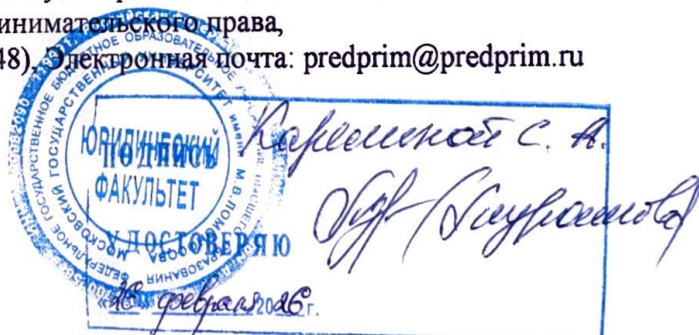 инимательского права,
48). Электронная почта: predprim@predprim.ru
ФЕДЕРАЛЬНОЕ ГОСУДАРСТВЕННОЕ БЮДЖЕТНОЕ ОБРАЗОВАТЕЛЬНОЕ
МОСКОВСКИЙ ГОСУДАРСТВЕННЫЙ УНИВЕРСИТЕТ имени М.В.ЛОМО
ЮРИДИЧЕСКИЙ
ФАКУЛЬТЕТ
ПОДПИСЬ Карелиной С. А.
УДОСТОВЕРЯЮ
«26» февраля 2026 г.